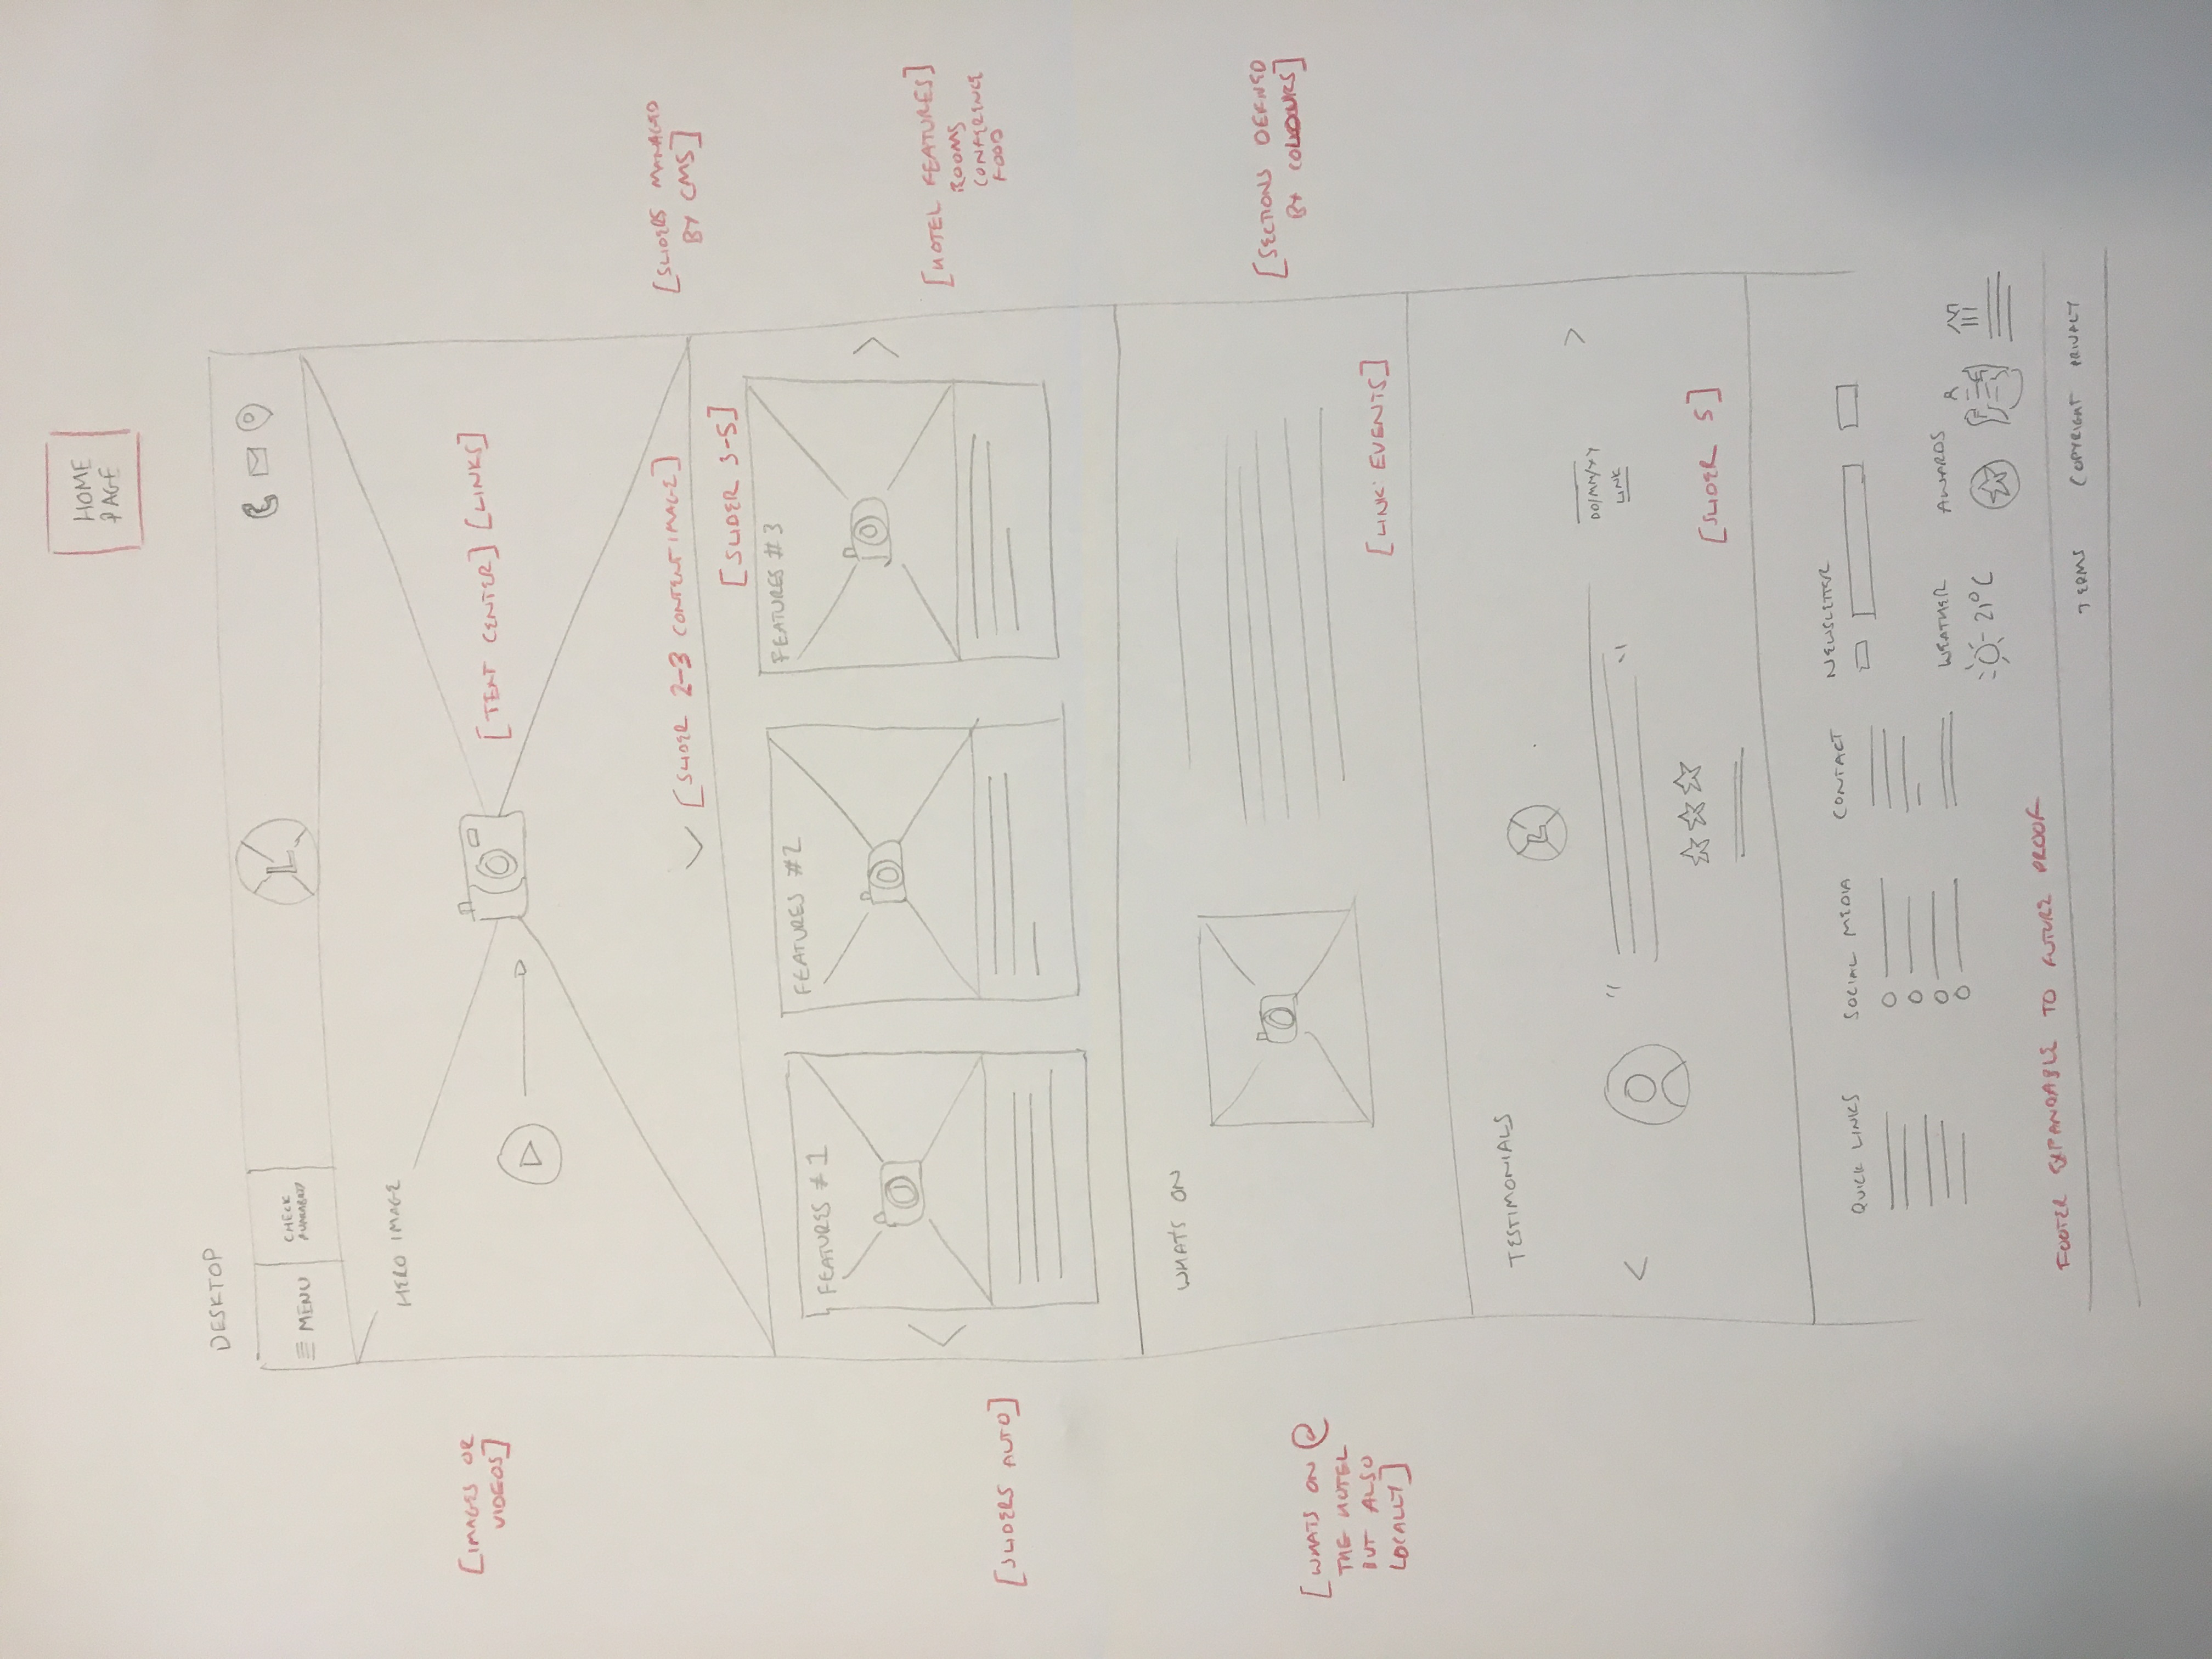 HOME
PAGE
DESKTOP
MENU
CHECK
L
HERO IMAGE
[IMAGES OR
VIDEOS]
[TEXT CENTER] [LINKS]
[SLIDER 2-3 CONTENT IMAGE]
[SLIDERS MANAGED
BY CMS]
[SLIDER 3-5]
FEATURES #1
FEATURES #2
FEATURES #3
[HOTEL FEATURES]
ROOMS
CONFERENCE
FOOD
[SLIDERS AUTO]
WHAT'S ON
[SECTIONS DEFINED
BY COLOURS]
[WHATS ON @
THE HOTEL
BUT ALSO
LOCALLY]
[LINK: EVENTS]
TESTIMONIALS
L
" "
DD/MM/YY
LINK
[SLIDER 5]
QUICK LINKS
SOCIAL MEDIA
CONTACT
NEWSLETTER
WEATHER
21°C
AWARDS
FOOTER EXPANDABLE TO FUTURE PROOF
TERMS COPYRIGHT PRIVACY